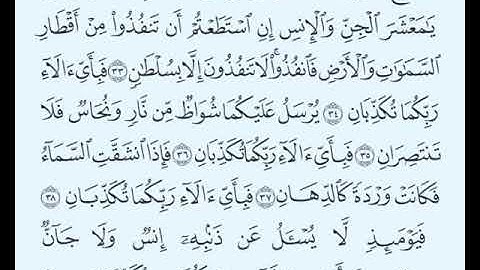 يَٰمَعْشَرَ ٱلْجِنِّ وَٱلْإِنسِ إِنِ ٱسْتَطَعْتُمْ أَن تَنفُذُوا۟ مِنْ أَقْطَارِ
ٱلسَّمَٰوَٰتِ وَٱلْأَرْضِ فَٱنفُذُوا۟ ۚ لَا تَنفُذُونَ إِلَّا بِسُلْطَٰنٍ ٣٣ فَبِأَىِّ ءَالَآءِ
رَبِّكُمَا تُكَذِّبَانِ ٣٤ يُرْسَلُ عَلَيْكُمَا شُوَاظٌ مِّن نَّارٍ وَنُحَاسٌ فَلَا
تَنتَصِرَانِ ٣٥ فَبِأَىِّ ءَالَآءِ رَبِّكُمَا تُكَذِّبَانِ ٣٦ فَإِذَا ٱنشَقَّتِ ٱلسَّمَآءُ
فَكَانَتْ وَرْدَةً كَٱلدِّهَانِ ٣٧ فَبِأَىِّ ءَالَآءِ رَبِّكُمَا تُكَذِّبَانِ ٣٨
فَيَوْمَئِذٍ لَّا يُسْـَٔلُ عَن ذَنۢبِهِۦٓ إِنسٌ وَلَا جَآنٌّ